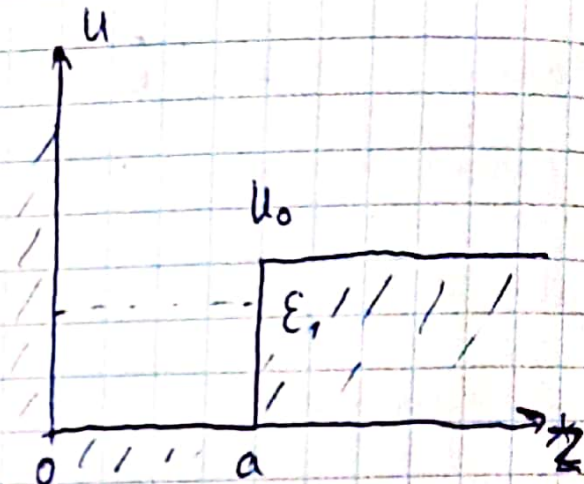 U
U₀
ε₁
0 a